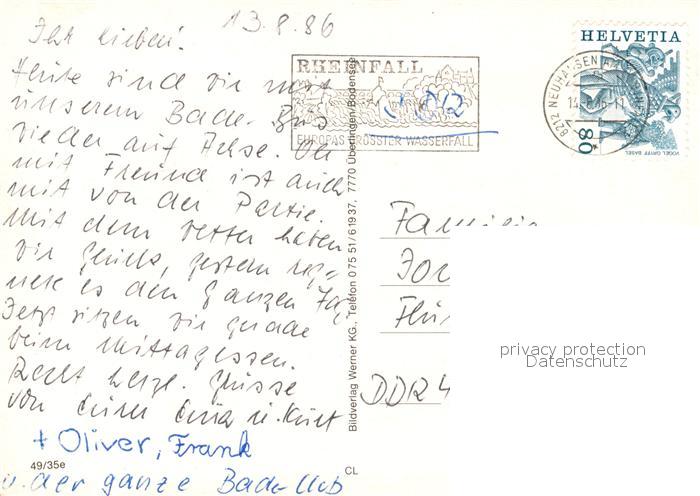 13.8.86
Ihr Lieben!
Heute sind wir mit
unserem Bade-Bus
wieder auf Achse. Oli
mit Freund ist auch
mit von der Partie.
Mit dem Wetter haben
wir Glück, gestern reg-
nete es den ganzen Tag
Jetzt sitzen wir gerade
beim Mittagessen.
Recht herzl. Grüsse
von Eurer u. Kurt
+ Oliver, Frank
u. der ganze Bade-Club
49/35e
CL
RHEINFALL
EUROPAS GRÖSSTER WASSERFALL
HELVETIA
80
VOGEL GRYFF BASEL
8212 NEUHAUSEN AM
Bildverlag Werner KG., Telefon 075 51/61937, 7770 Überlingen/Bodensee
Familie
DDR 4
privacy protection
Datenschutz